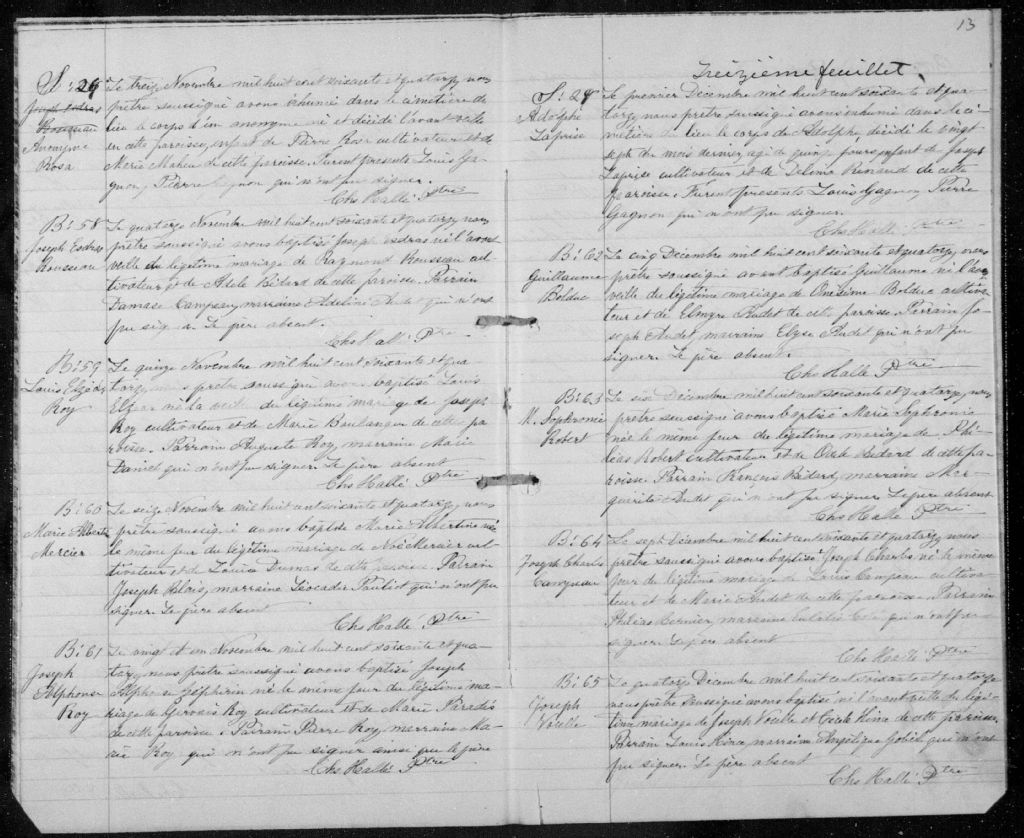 S: 26
Joseph Esdras
Rousseau
Anonyme
Rosa
Le treize Novembre mil huit cent soixante et quatorze nous
prêtre soussigné avons inhumé dans le cimetière de
lieu le corps d'un anonyme né et décédé l'avant veille
en cette paroisse, enfant de Pierre Rosa cultivateur et de
Marie de cette paroisse. Furent presents Louis Ga-
gnon, Pierre Gagnon qui n'ont pu signer.
Chs Hallé Ptre
B: 58
Joseph Esdras
Rousseau
Le quatorze Novembre mil huit cent soixante et quatorze nous
prêtre soussigné avons baptisé Joseph Esdras né l'avant
veille du légitime mariage de Raymond Rousseau cul-
tivateur et de Adele Bédard de cette paroisse. Parrain
Damase Campeau, marraine Adeline Audet qui n'ont
pu signer. Le père absent.
Chs Hallé Ptre
B: 59
Louis Elzéar
Roy
Le quinze Novembre mil huit cent soixante et qua-
torze nous prêtre soussigné avons baptisé Louis
Elzéar né la veille du légitime mariage de Joseph
Roy cultivateur et de Marie Boulanger de cette pa-
roisse. Parrain Auguste Roy, marraine Marie
Daniel qui n'ont pu signer. Le père absent
Chs Hallé Ptre
B: 60
Marie Albertine
Mercier
Le seize Novembre mil huit cent soixante et quatorze nous
prêtre soussigné avons baptisé Marie Albertine née
le même jour du légitime mariage de Noé Mercier cul-
tivateur et de Louise Dumas de cette paroisse. Parrain
Joseph Blois, marraine Léocadie Pauliot qui n'ont pu
signer. Le père absent
Chs Hallé Ptre
B: 61
Joseph
Alphonse
Roy
Le vingt et un Novembre mil huit cent soixante et qua-
torze nous prêtre soussigné avons baptisé Joseph
Alphonse Zéphirin né le même jour du légitime ma-
riage de Gervais Roy cultivateur et de Marie Paradis
de cette paroisse. Parrain Pierre Roy, marraine Ma-
rie Roy qui n'ont pu signer ainsi que le père
Chs Hallé Ptre
13
Treizième feuillet.
S: 27
Adolphe
Laprise
Le premier Decembre mil huit cent soixante et qua-
torze nous prêtre soussigné avons inhumé dans le ci-
metière de lieu le corps de Adolphe décédé le vingt
sept du mois dernier, agé de quinze jours, enfant de Joseph
Laprise cultivateur et de Délima Renaud de cette
paroisse. Furent presents Louis Gagnon, Pierre
Gagnon qui n'ont pu signer.
Chs Hallé Ptre
B: 62
Guillaume
Bolduc
Le cinq Décembre mil huit cent soixante et quatorze nous
prêtre soussigné avons baptisé Guillaume né la
veille du légitime mariage de Onésime Bolduc cultiva-
teur et de Elmyre Audet de cette paroisse. Parrain Jo-
seph Audet, marraine Elyse Audet qui n'ont pu
signer. Le père absent.
Chs Hallé Ptre
B: 63
M. Sophronie
Robert
Le six Décembre mil huit cent soixante et quatorze nous
prêtre soussigné avons baptisé Marie Sophronie
née le même jour du légitime mariage de Phi-
léas Robert cultivateur et de Bédard de cette pa-
roisse. Parrain François Bédard, marraine Mar-
guerite Audet qui n'ont pu signer. Le père absent
Chs Hallé Ptre
B: 64
Joseph Charles
Campeau
Le sept Décembre mil huit cent soixante et quatorze nous
prêtre soussigné avons baptisé Joseph Charles né le même
jour du légitime mariage de Louis Campeau cultiva-
teur et de Marie Audet de cette paroisse. Parrain
Philéas Bernier, marraine qui n'ont pu
signer. Le père absent
Chs Hallé Ptre
B: 65
Joseph
Voielle
Le quatorze Decembre mil huit cent soixante et quatorze
nous prêtre soussigné avons baptisé né l'avant veille du légi-
time mariage de Joseph Voielle et Cécile Kine de cette paroisse.
Parrain Louis Kine, marraine Angélique qui n'ont
pu signer. Le père absent
Chs Hallé Ptre